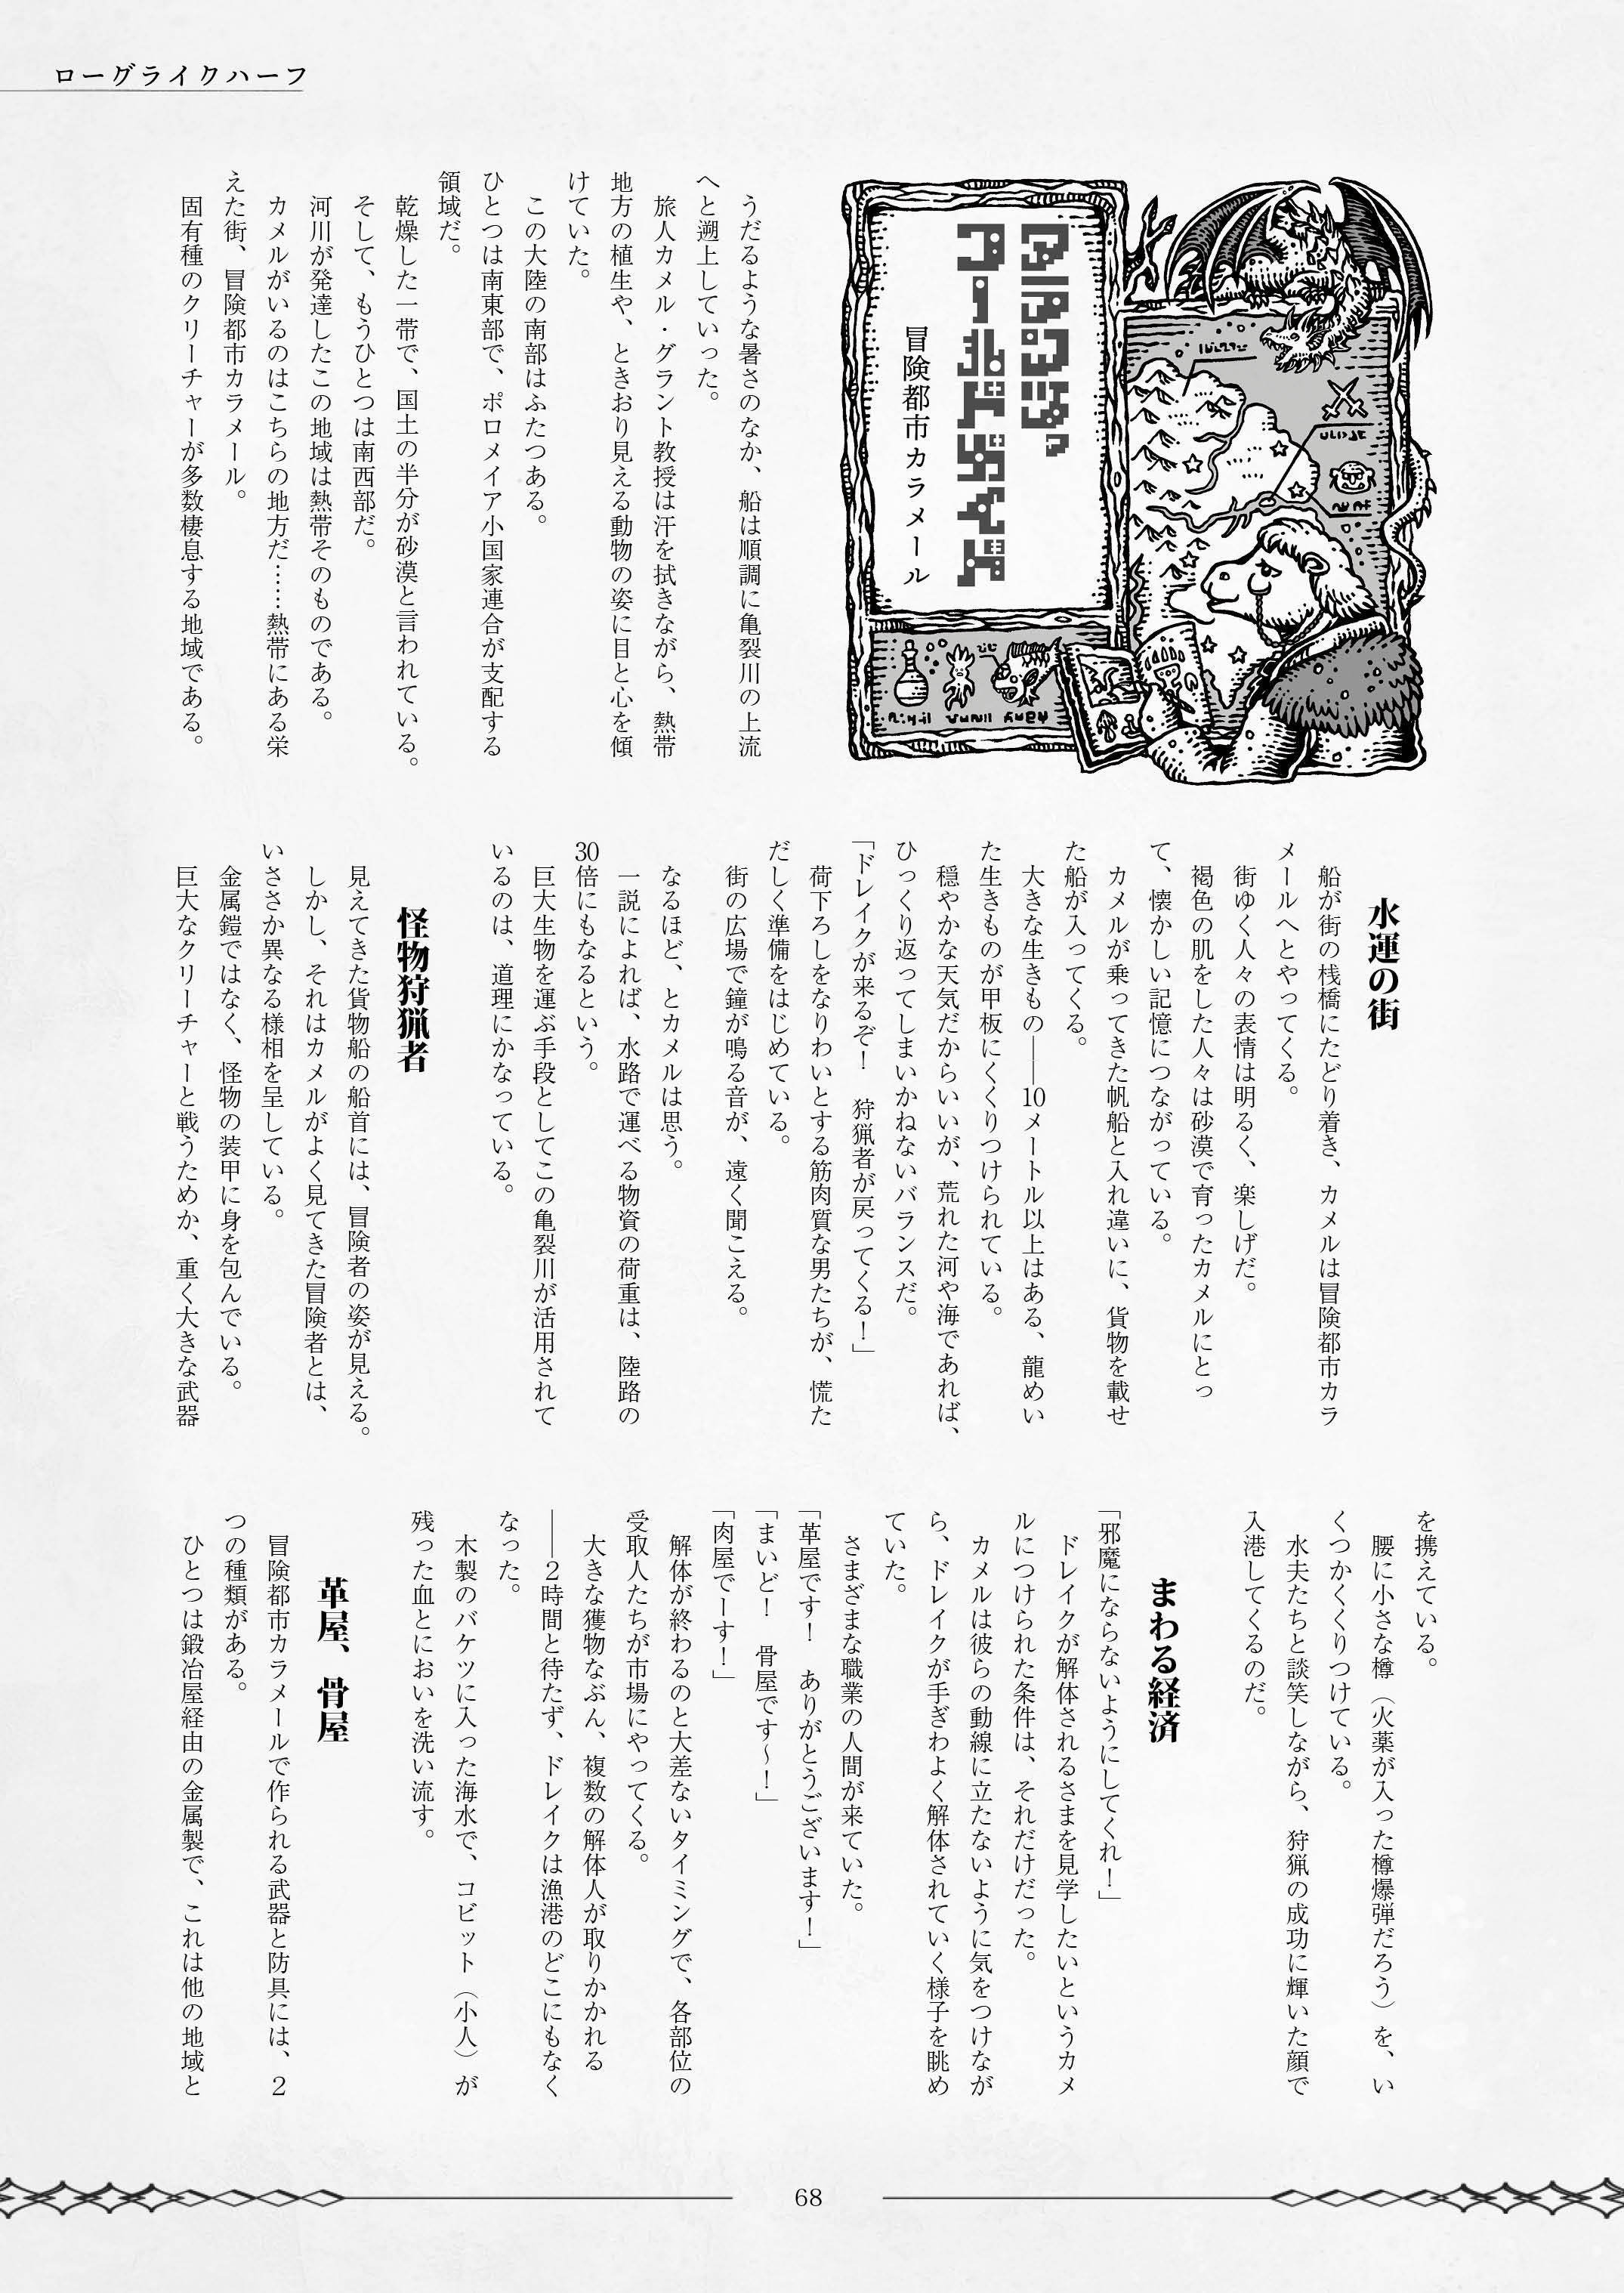 ローグライクハーフ
冒険都市カラメール
うだるような暑さのなか、船は順調に亀裂川の上流
へと遡上していった。
旅人カメル・グラント教授は汗を拭きながら、熱帯
地方の植生や、ときおり見える動物の姿に目と心を傾
けていた。
この大陸の南部はふたつある。
ひとつは南東部で、ポロメイア小国家連合が支配する
領域だ。
乾燥した一帯で、国土の半分が砂漠と言われている。
そして、もうひとつは南西部だ。
河川が発達したこの地域は熱帯そのものである。
カメルがいるのはこちらの地方だ……熱帯にある栄
えた街、冒険都市カラメール。
固有種のクリーチャーが多数棲息する地域である。
水運の街
船が街の桟橋にたどり着き、カメルは冒険都市カラ
メールへとやってくる。
街ゆく人々の表情は明るく、楽しげだ。
褐色の肌をした人々は砂漠で育ったカメルにとっ
て、懐かしい記憶につながっている。
カメルが乗ってきた帆船と入れ違いに、貨物を載せ
た船が入ってくる。
大きな生きもの――10メートル以上はある、龍めい
た生きものが甲板にくくりつけられている。
穏やかな天気だからいいが、荒れた河や海であれば、
ひっくり返ってしまいかねないバランスだ。
「ドレイクが来るぞ！　狩猟者が戻ってくる！」
荷下ろしをなりわいとする筋肉質な男たちが、慌た
だしく準備をはじめている。
街の広場で鐘が鳴る音が、遠く聞こえる。
なるほど、とカメルは思う。
一説によれば、水路で運べる物資の荷重は、陸路の
30倍にもなるという。
巨大生物を運ぶ手段としてこの亀裂川が活用されて
いるのは、道理にかなっている。
怪物狩猟者
見えてきた貨物船の船首には、冒険者の姿が見える。
しかし、それはカメルがよく見てきた冒険者とは、
いささか異なる様相を呈している。
金属鎧ではなく、怪物の装甲に身を包んでいる。
巨大なクリーチャーと戦うためか、重く大きな武器
を携えている。
腰に小さな樽（火薬が入った樽爆弾だろう）を、い
くつかくくりつけている。
水夫たちと談笑しながら、狩猟の成功に輝いた顔で
入港してくるのだ。
まわる経済
「邪魔にならないようにしてくれ！」
ドレイクが解体されるさまを見学したいというカメ
ルにつけられた条件は、それだけだった。
カメルは彼らの動線に立たないように気をつけなが
ら、ドレイクが手ぎわよく解体されていく様子を眺め
ていた。
さまざまな職業の人間が来ていた。
「革屋です！　ありがとうございます！」
「まいど！　骨屋です～！」
「肉屋でーす！」
解体が終わるのと大差ないタイミングで、各部位の
受取人たちが市場にやってくる。
大きな獲物なぶん、複数の解体人が取りかかれる
――2時間と待たず、ドレイクは漁港のどこにもなく
なった。
木製のバケツに入った海水で、コビット（小人）が
残った血とにおいを洗い流す。
革屋、骨屋
冒険都市カラメールで作られる武器と防具には、2
つの種類がある。
ひとつは鍛冶屋経由の金属製で、これは他の地域と
68